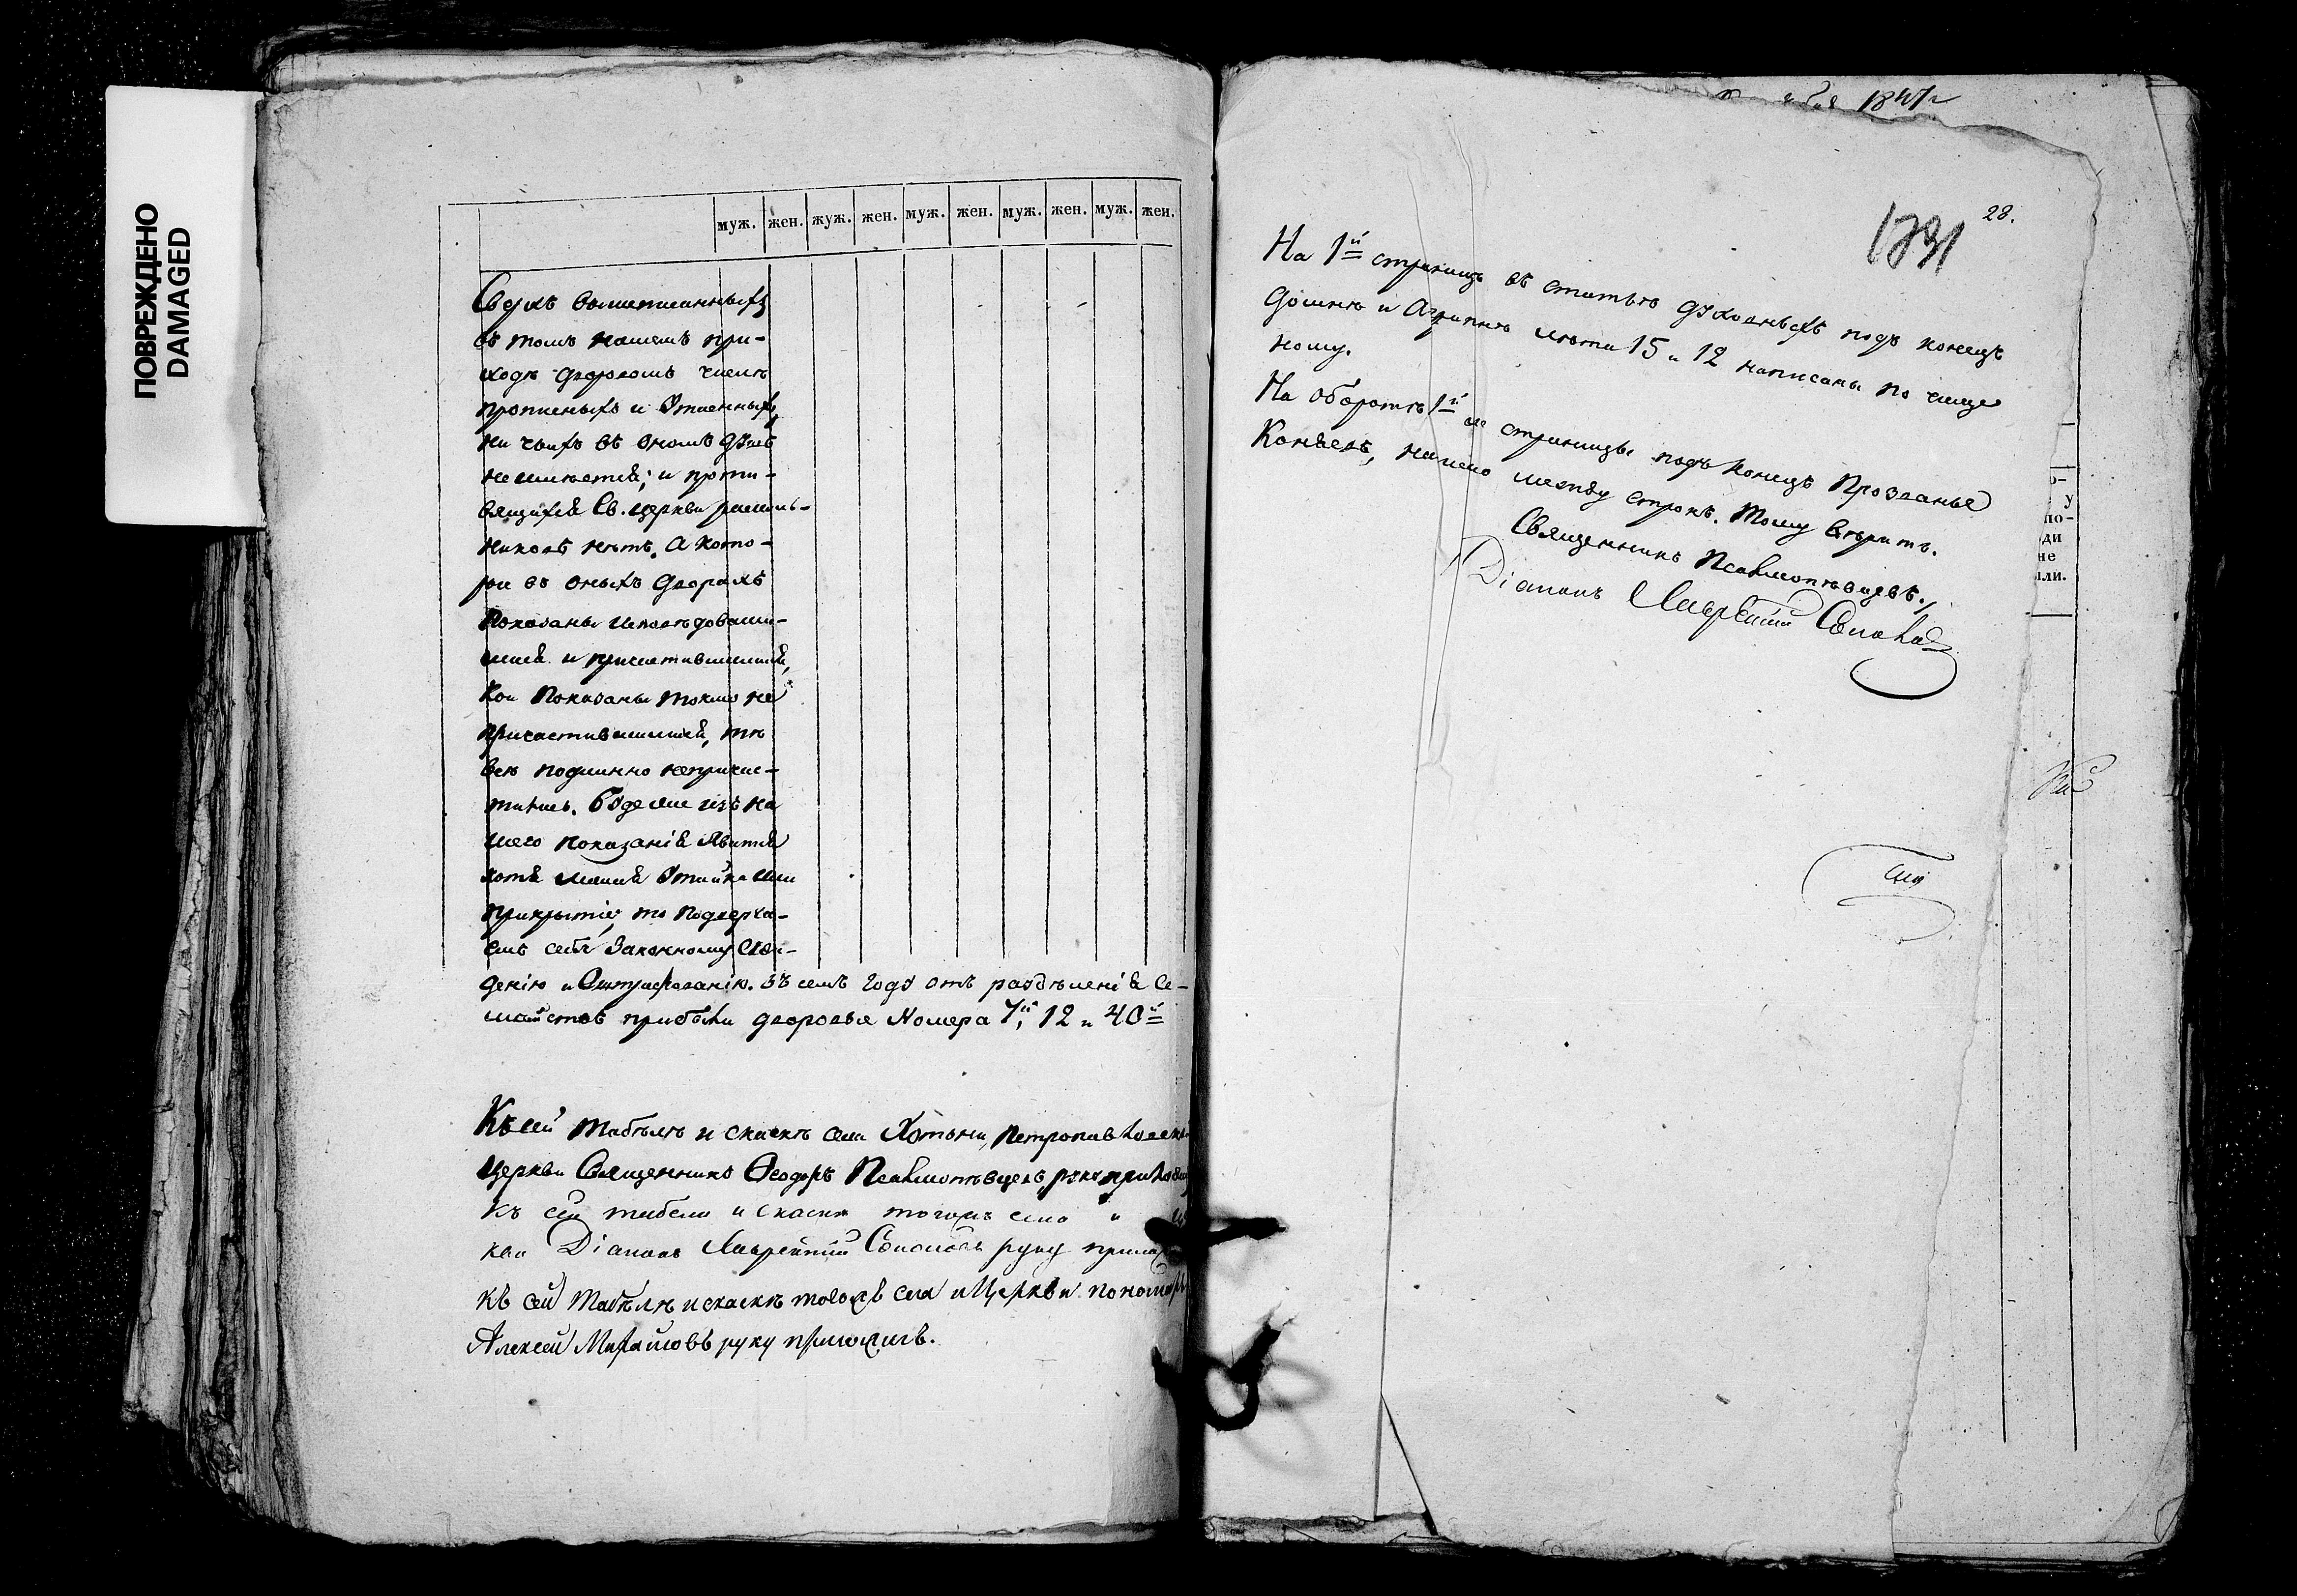 ПОВРЕЖДЕНО
DAMAGED
муж. жен. жуж. жен. муж. жен. муж. жен. муж. жен.
Сверхъ вышеписанныхъ
въ томъ нашемъ при-
ходѣ дворовомъ числѣ
прописныхъ и Утаенныхъ,
ни чьихъ въ ономъ душъ
не имѣется; и проти-
вящихся Св. церкви расколь-
никовъ нѣтъ. А кото-
рыи въ оныхъ дворахъ
Показаны исповѣдовавши-
мися и причастившимися,
Кои Показаны токмо не
причастившимися, тѣ
всѣ подлинно непричас-
тились. Буде же изъ на
шего показанія Явится
хотя малая Утайка или
прикрытіе, то подверга-
емъ себя Законному Суж-
денію и Оштрафованію. Въ семъ году отъ раздѣленія Се-
мействъ прибыли дворовые Номера 7й, 12 и 40й
Къ сей табѣлѣ и скаскѣ села Хотыни, Петропавловской
Церкви Священникъ Ѳеодоръ Псалмопѣвцевъ руку приложилъ
Къ сей табели и скаскѣ тогожъ села и
кви Діаконъ Лаврентій руку прилож
Къ сей табѣлѣ и скаскѣ тогожъ села и Церкви пономарь
Алексей Михайловъ руку приложилъ.
1847г
28.
На 1й страницѣ въ статьѣ духовныхъ подъ конецъ
Домнѣ и Агрипинѣ лѣта 15 и 12 написаны по чище
ному.
На оборотѣ 1й же страницы подъ конецъ Прозванье
между строкъ. Тому вѣрить.
Священникъ Псалмопѣвцевъ.
Діаконъ Лаврентій
о-
у
по-
ди
не
ыли.